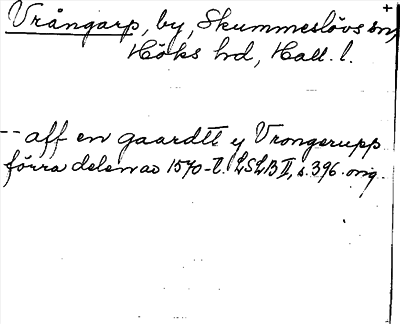 Vrångarp, by, Skummeslövs sn,
Höks hd, Hall. l.
-- aff en gaardtt y Vrongerupp
förra delen av 1570-t. LSLB II, s. 396. orig.